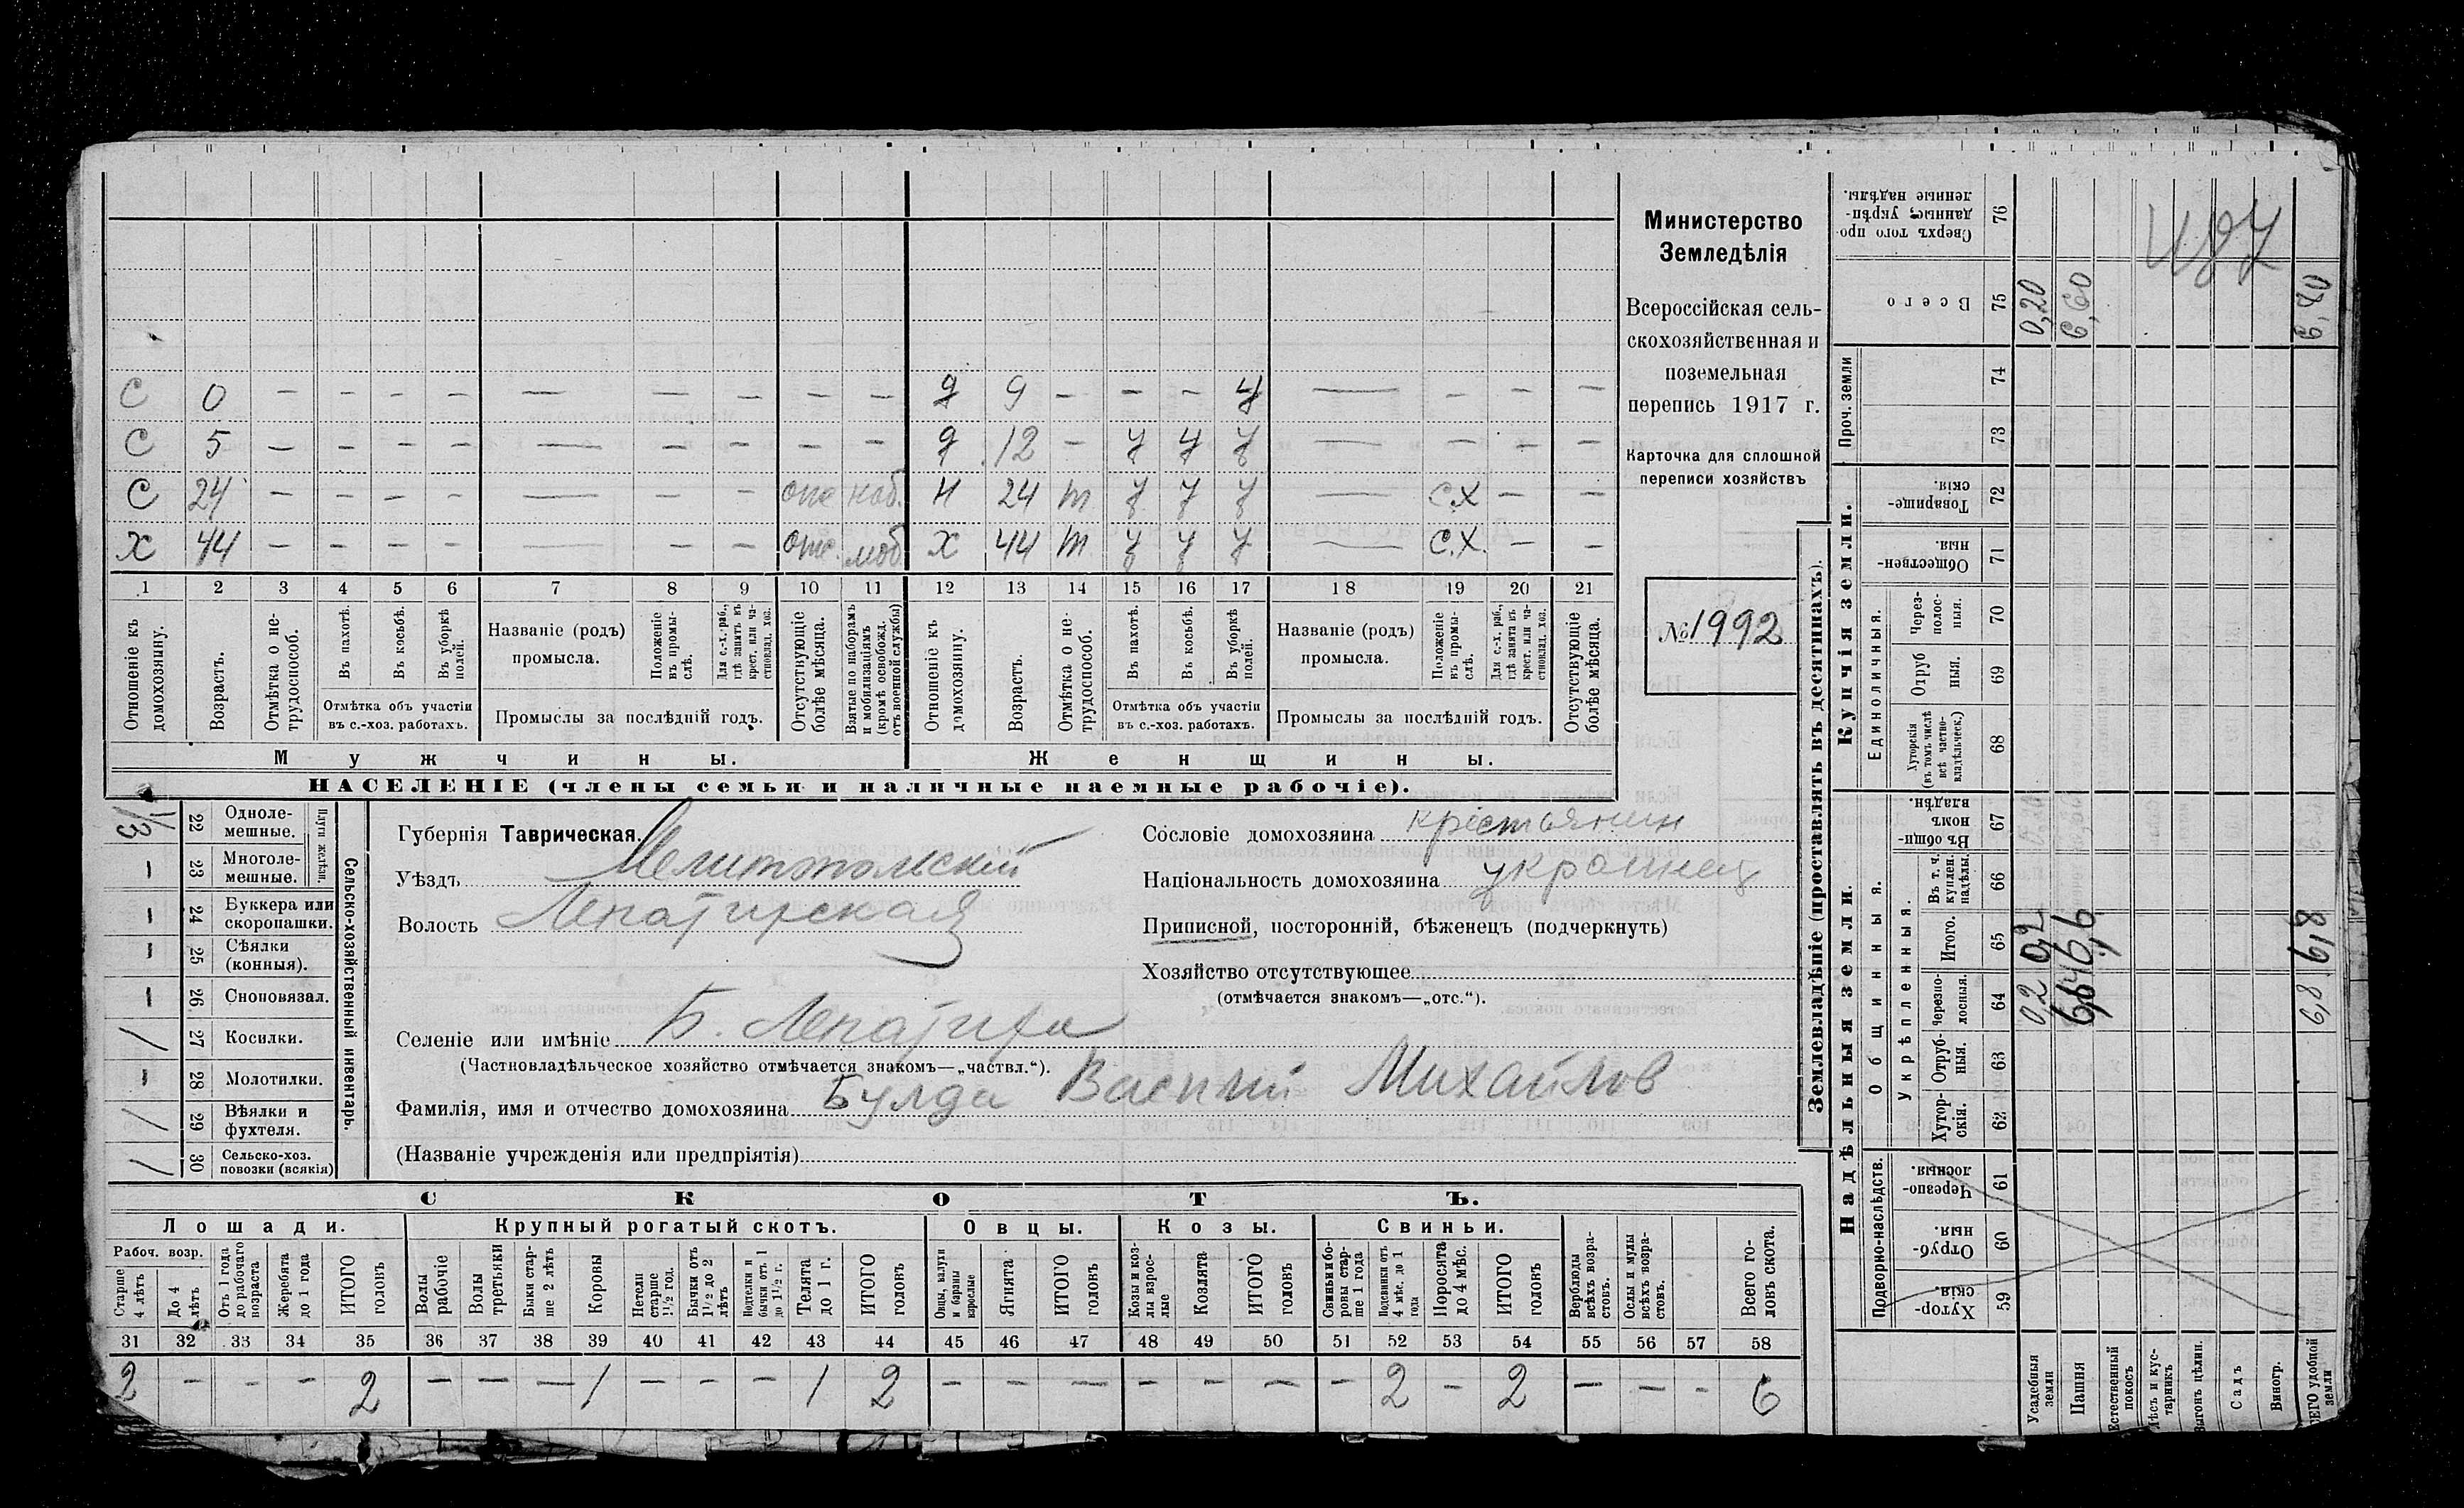 С 0 — — — — — — — — — д 9 — — — у — — — —
С 5 — — — — — — — — — д 12 — у у у — — — —
С 24 — — — — — — — отс наб. Н 24 т у у у — С.Х — —
Х 44 — — — — — — — отс. моб. Х 44 т у у у — С.Х. — —
1 2 3 4 5 6 7 8 9 10 11 12 13 14 15 16 17 18 19 20 21
Отношеніе къ домохозяину.
Возрастъ.
Отмѣтка о не-трудоспособ.
Въ пахотѣ.
Въ косьбѣ.
Въ уборкѣ полей.
Отмѣтка объ участіи
въ с.-хоз. работахъ.
Названіе (родъ)
промысла.
Положеніе въ промы-слѣ.
Для с.-х. раб., гдѣ занятъ въ крест. или ча-стновлад. хоз.
Промыслы за послѣдній годъ.
Отсутствующіе болѣе мѣсяца.
Взятые по наборамъ и мобилизаціямъ (кромѣ освобожд. отъ военной службы)
Отношеніе къ домохозяину.
Возрастъ.
Отмѣтка о не-трудоспособ.
Въ пахотѣ.
Въ косьбѣ.
Въ уборкѣ полей.
Отмѣтка объ участіи
въ с.-хоз. работахъ.
Названіе (родъ)
промысла.
Положеніе въ промы-слѣ.
Для с.-х. раб., гдѣ занята въ крест. или ча-стновлад. хоз.
Промыслы за послѣдній годъ.
Отсутствующіе болѣе мѣсяца.
Мужчины. Женщины.
НАСЕЛЕНІЕ (члены семьи и наличные наемные рабочіе).
Министерство
Земледѣлія
Всероссійская сель-
скохозяйственная и
поземельная
перепись 1917 г.
Карточка для сплошной
переписи хозяйствъ
№ 1992
Сельско-хозяйственный инвентарь.
Плуги желѣзн.
1/3 22 Одноле-мешные.
— 23 Многоле-мешные.
— 24 Буккера или скоропашки.
— 25 Сѣялки (конныя).
— 26 Сноповязал.
/ 27 Косилки.
— 28 Молотилки.
/ 29 Вѣялки и фухтеля.
/ 30 Сельско-хоз. повозки (всякія)
Губернія Таврическая.
Уѣздъ Мелитопольский
Волость Лепатихская
Сословіе домохозяина крестьянин
Національность домохозяина украинец
Приписной, посторонній, бѣженецъ (подчеркнуть)
Хозяйство отсутствующее
(отмѣчается знакомъ—„отс.“).
Селеніе или имѣніе Б. Лепатиха
(Частновладѣльческое хозяйство отмѣчается знакомъ—„частвл.“).
Фамилія, имя и отчество домохозяина Булда Василий Михайлов
(Названіе учрежденія или предпріятія)
СКОТЪ.
Лошади. Крупный рогатый скотъ. Овцы. Козы. Свиньи.
Рабоч. возр.
Старше 4 лѣтъ
До 4 лѣтъ
Отъ 1 года до рабочаго возраста
Жеребята до 1 года
ИТОГО головъ
Волы рабочіе
Волы третьяки
Быки стар-ше 2 лѣтъ
Коровы
Нетели старше 1½ год.
Бычки отъ 1½ до 2 лѣтъ
Подтелки и бычки отъ 1 до 1½ г.
Телята до 1 г.
ИТОГО головъ
Овцы, валухи и бараны взрослые
Ягнята
ИТОГО головъ
Козы и коз-лы взрос-лые
Козлята
ИТОГО головъ
Свиньи и бо-ровы стар-ше 1 года
Подсвинки отъ 4 мѣс. до 1 года
Поросята до 4 мѣс.
ИТОГО головъ
Верблюды всѣхъ возра-стовъ.
Ослы и мулы всѣхъ возра-стовъ.
Всего го-ловъ скота.
31 32 33 34 35 36 37 38 39 40 41 42 43 44 45 46 47 48 49 50 51 52 53 54 55 56 57 58
2 — — — 2 — — — 1 — — — 1 2 — — — — — — — 2 — 2 — — — 6
Землевладѣніе (проставлять въ десятинахъ).
Купчія земли.
Надѣльныя земли.
Проч. земли
Единоличныя.
Общинныя.
Укрѣпленныя.
Подворно-наслѣдств.
Сверхъ того про-данные, укрѣп-ленные надѣлы. 76
Всего 75 0,20 6,60 6,80
74
73
Товарище-скія. 72
Обществен-ныя. 71
Через-полос-ныя. 70
Отруб-ныя. 69
Хуторскія (въ томъ числѣ всѣ частно-владѣльческ.) 68
Въ общин-номъ владѣн. 67
Въ т. ч. куплен. надѣлы. 66
Итого. 65
Черезпо-лосныя. 64
Отруб-ныя. 63
Хутор-скія. 62
Черезпо-лосныя. 61
Отруб-ныя. 60
Хутор-скія. 59
Усадебныя земли
Пашня
Естественный покосъ
Лѣсъ и кус-тарникъ
Выгонъ цѣлин.
Садъ
Виногр.
ВСЕГО удобной земли